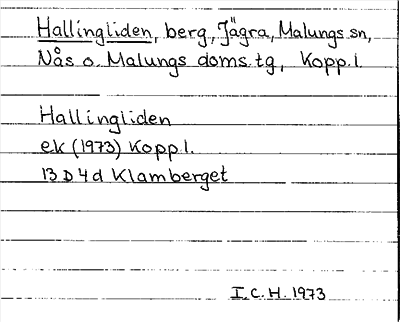 Hallingliden, berg, Jägra, Malungs sn,
Nås o. Malungs doms. tg, Kopp. l.
Hallingliden
ek (1973) Kopp l.
13 D 4 d Klamberget
I. C. H. 1973